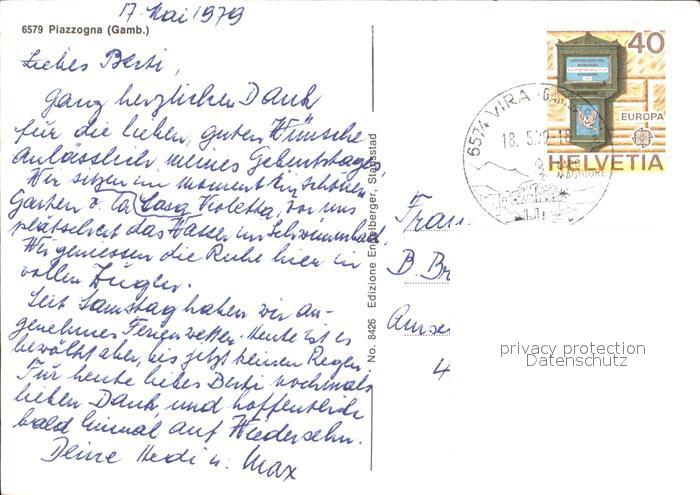 17. Mai 1979
6579 Piazzogna (Gamb.)
Liebes Berti,
Ganz herzlichen Dank
für die lieben, guten Wünsche
anlässlich meines Geburtstages.
Wir sitzen im Moment im schönen
Garten v. la Casa Violetta, vor uns
plätschert das Wasser im Schwimmbad.
Wir geniessen die Ruhe hier in
vollen Zügen.
Seit Samstag haben wir an-
genehmes Ferienwetter. Heute ist es
bewölkt aber, bis jetzt keinen Regen.
Für heute liebes Berti nochmals
lieben Dank, und hoffentlich
bald einmal auf Wiedersehn.
Deine Heidi u. Max
No. 8426 Edizione Engelberger, Stansstad
40
EUROPA
HELVETIA
6574 VIRA
18. 5. 79-18
MAGGIORE
Frau
B. Br
Amse
4
privacy protection
Datenschutz